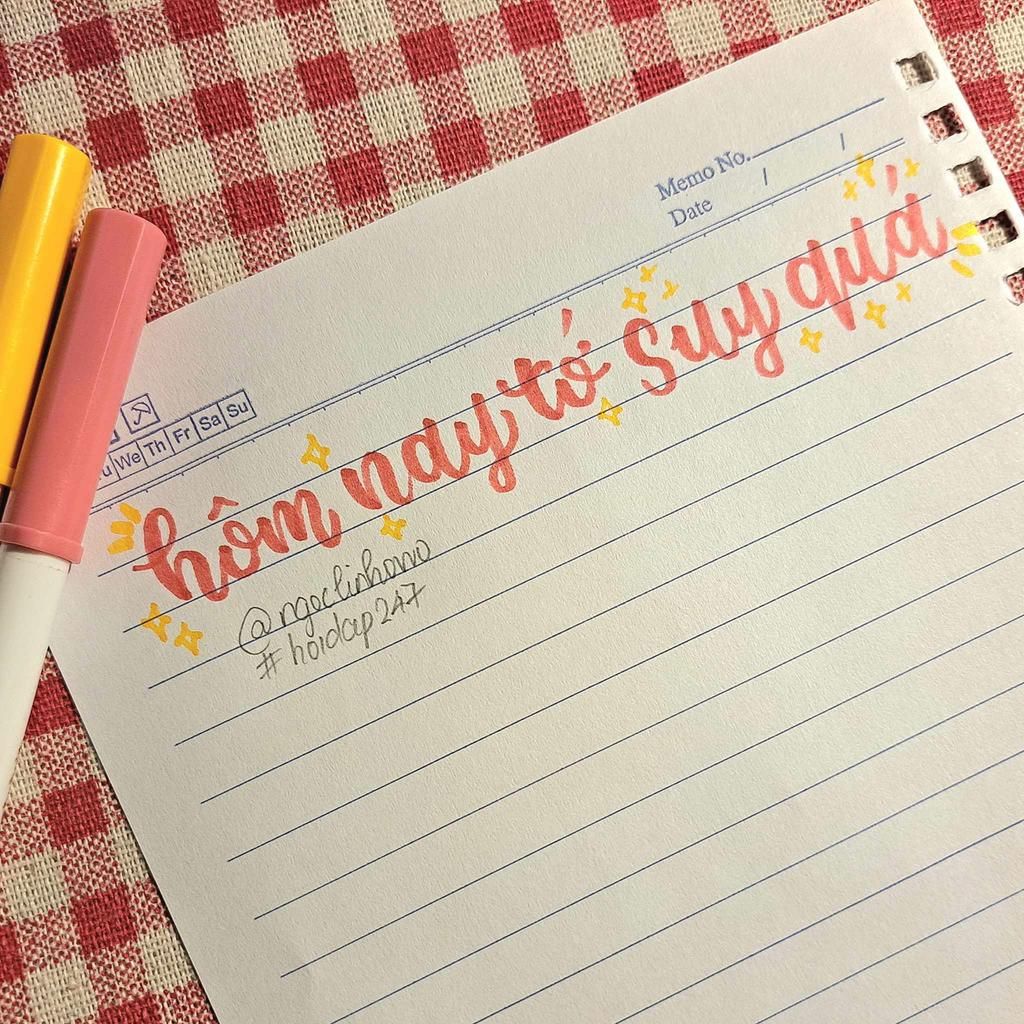 Memo No. /
Date /
We Th Fr Sa Su
hôm nay tớ suy quá
@ngoclinhowo
#hoidap247